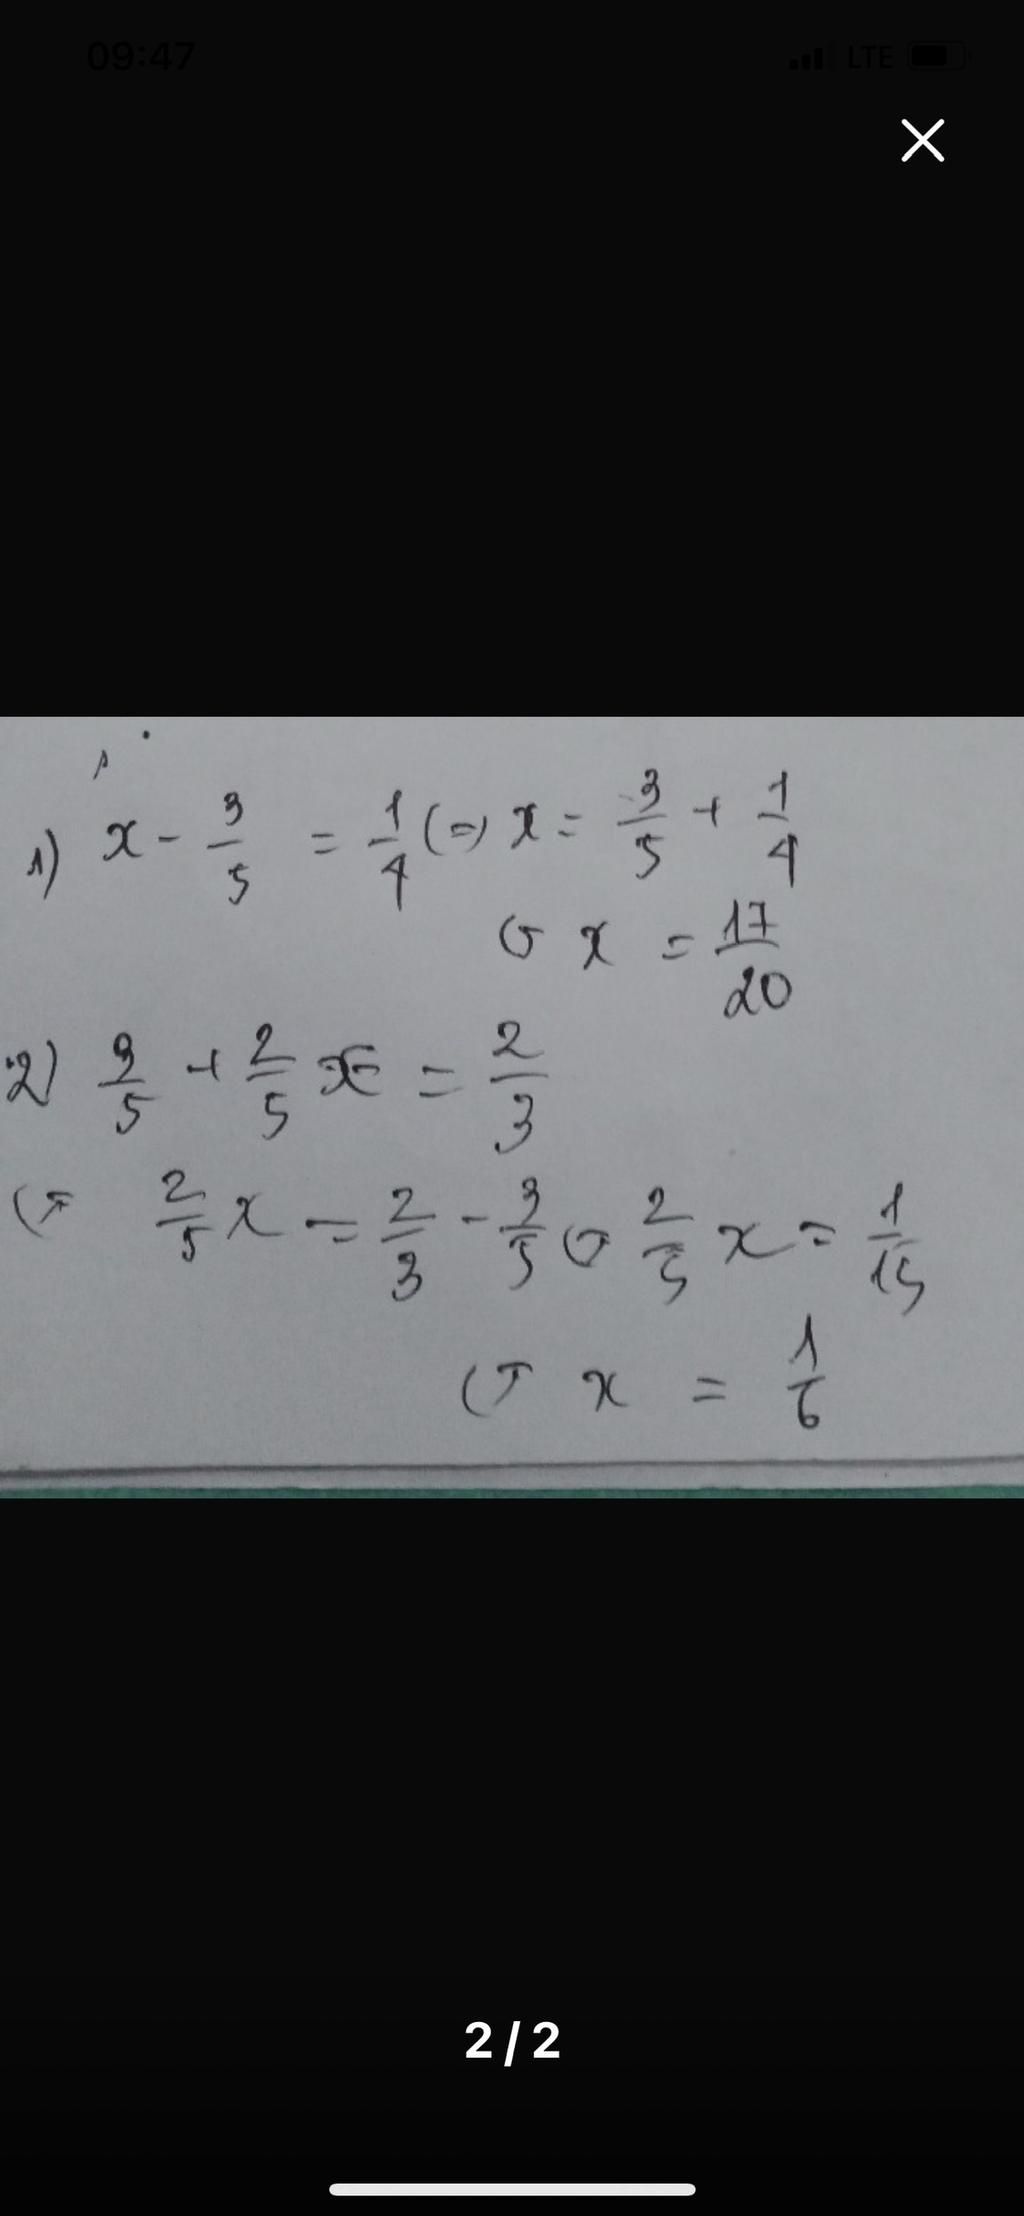 09:47 LTE
1) x - 3/5 = 1/4 (=) x = 3/5 + 1/4
x = 17/20
2) 3/5 + 2/5 x = 2/3
2/5 x = 2/3 - 3/5 2/5 x = 1/15
x = 1/6
2/2